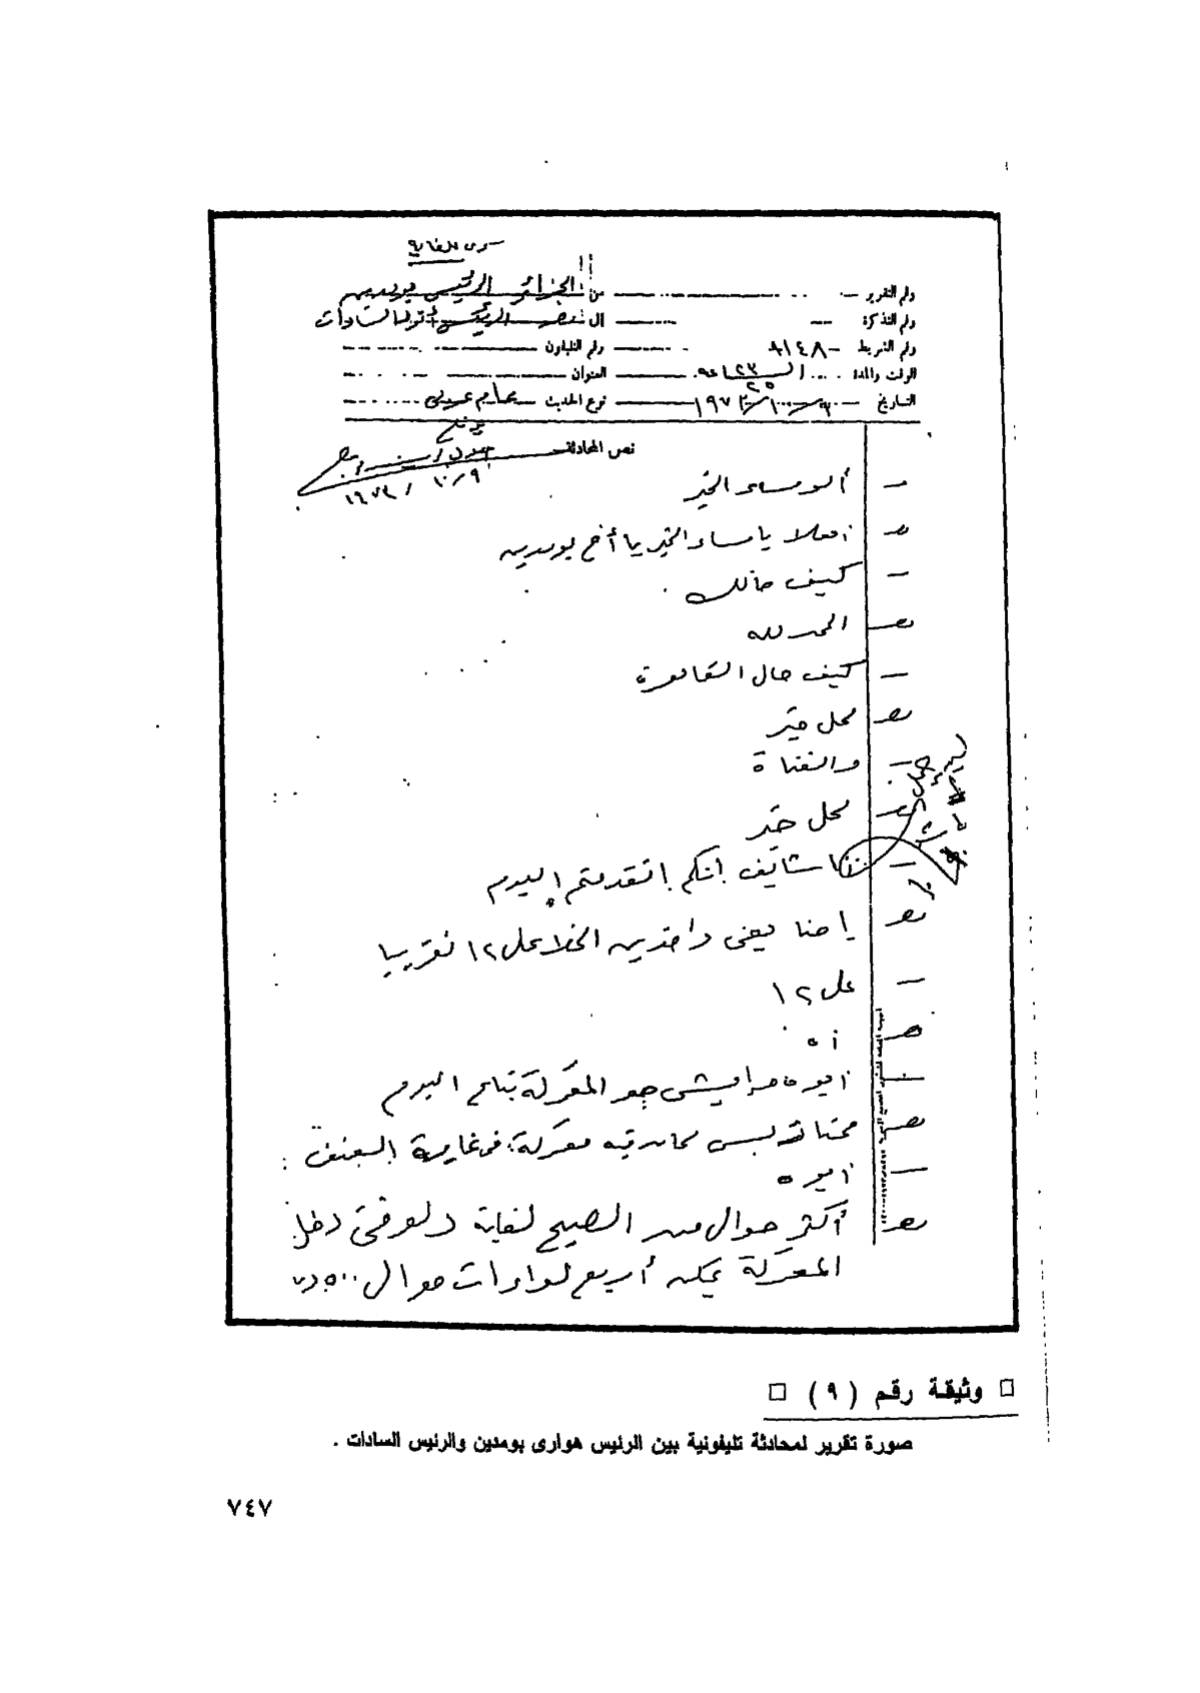 سرى للغاية
رقم التقرير — من الجزائر الرئيس بومدين
رقم التذكرة — الى مصر الرئيس أنور السادات
رقم الشريط — ٨١٤٨ رقم التليفون
الوقت والمدة العنوان
التاريخ ٩/١٠/١٩٧٣ نوع الحديث هام عربى
نص المحادثة
٩/١٠/١٩٧٣
— ألو مساء الخير
ـصـ اهلا يا مساء الخير يا أخ بومدين
— كيف حالك
ـصـ الحمد لله
— كيف حال القاهرة
ـصـ كل خير
— والقناة
ـصـ كل خير
— انا شايف انكم اتقدمتم اليوم
ـصـ احنا يعنى واخدين الخلا على ١٢ تقريبا
— على ١٢
ـصـ اه
— ايوه المعركة بتاع اليوم
ـصـ بس كان فيه معركة فى غاية العنف
— ايوه
ـصـ أكثر حوالى من الصبح لغاية دلوقتى دخل
المعركة يمكن أربع لواءات حوالى ٥٠٠
□ وثيقة رقم ( ٩ ) □
صورة تقرير لمحادثة تليفونية بين الرئيس هوارى بومدين والرئيس السادات .
٧٤٧